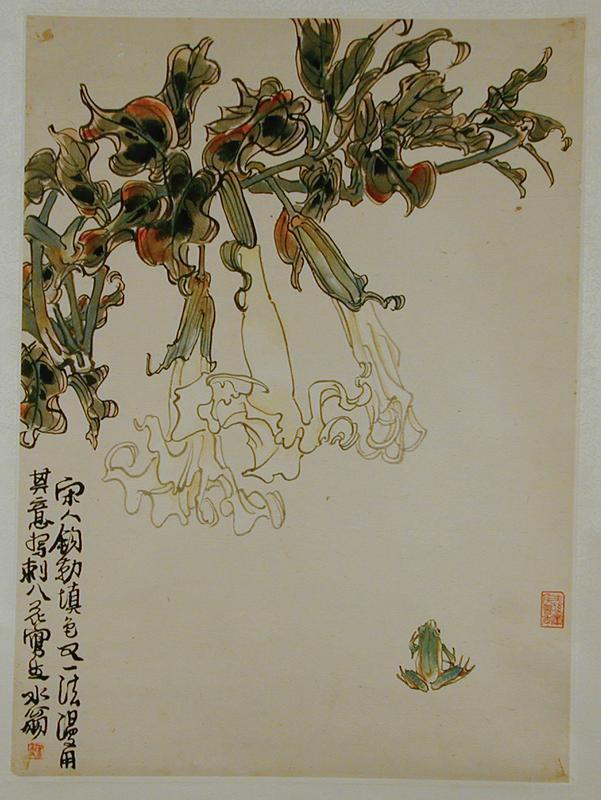 宋人鈎勒填色又一法漫用
其意写刺八花寫生水翁